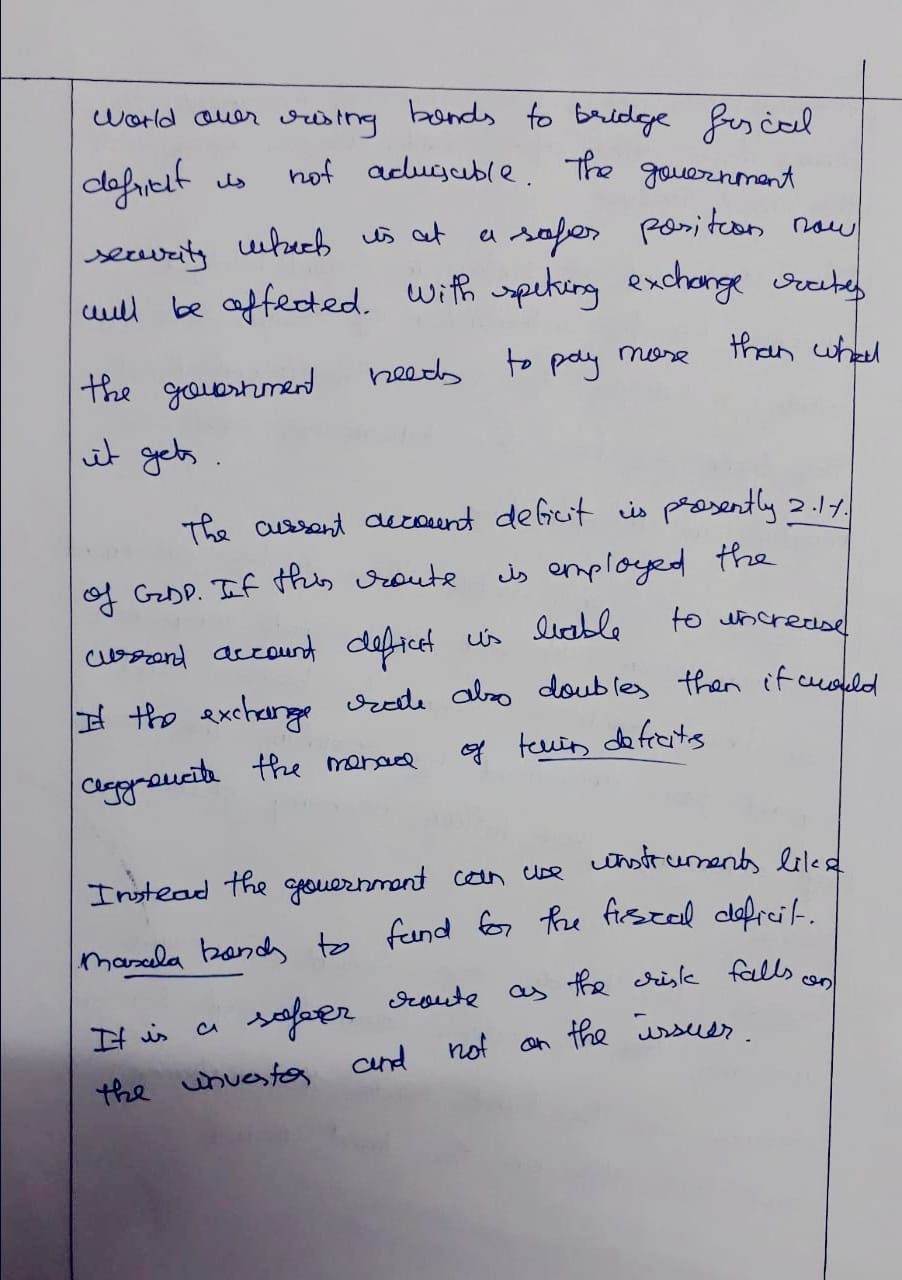 World over rising bonds to bridge fiscal
deficit is not advisable. The government
security which is at a safer position now
will be affected. With spiking exchange rates
the government needs to pay more than what
it gets.
The current account deficit is presently 2.1%
of GDP. If this route is employed the
current account deficit is liable to increase
If the exchange rate also doubles then it would
aggravate the menace of twin deficits
Instead the government can use instruments like
masala bonds to fund for the fiscal deficit.
It is a safer route as the risk falls on
the investor and not on the issuer.